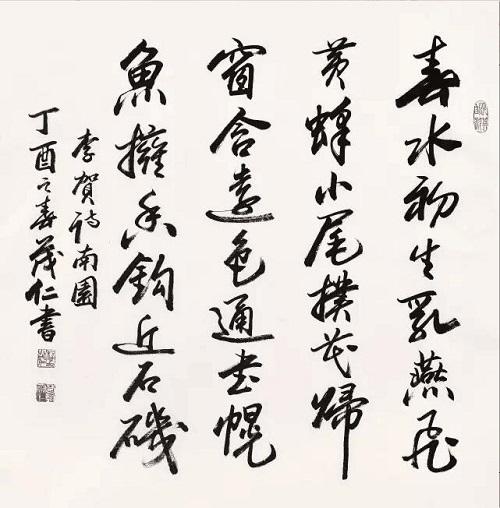 春水初生乳燕飛
黄蜂小尾撲花歸
窗含遠色通書幌
魚擁香鈎近石磯
李賀詩南園
丁酉之春茂仁書